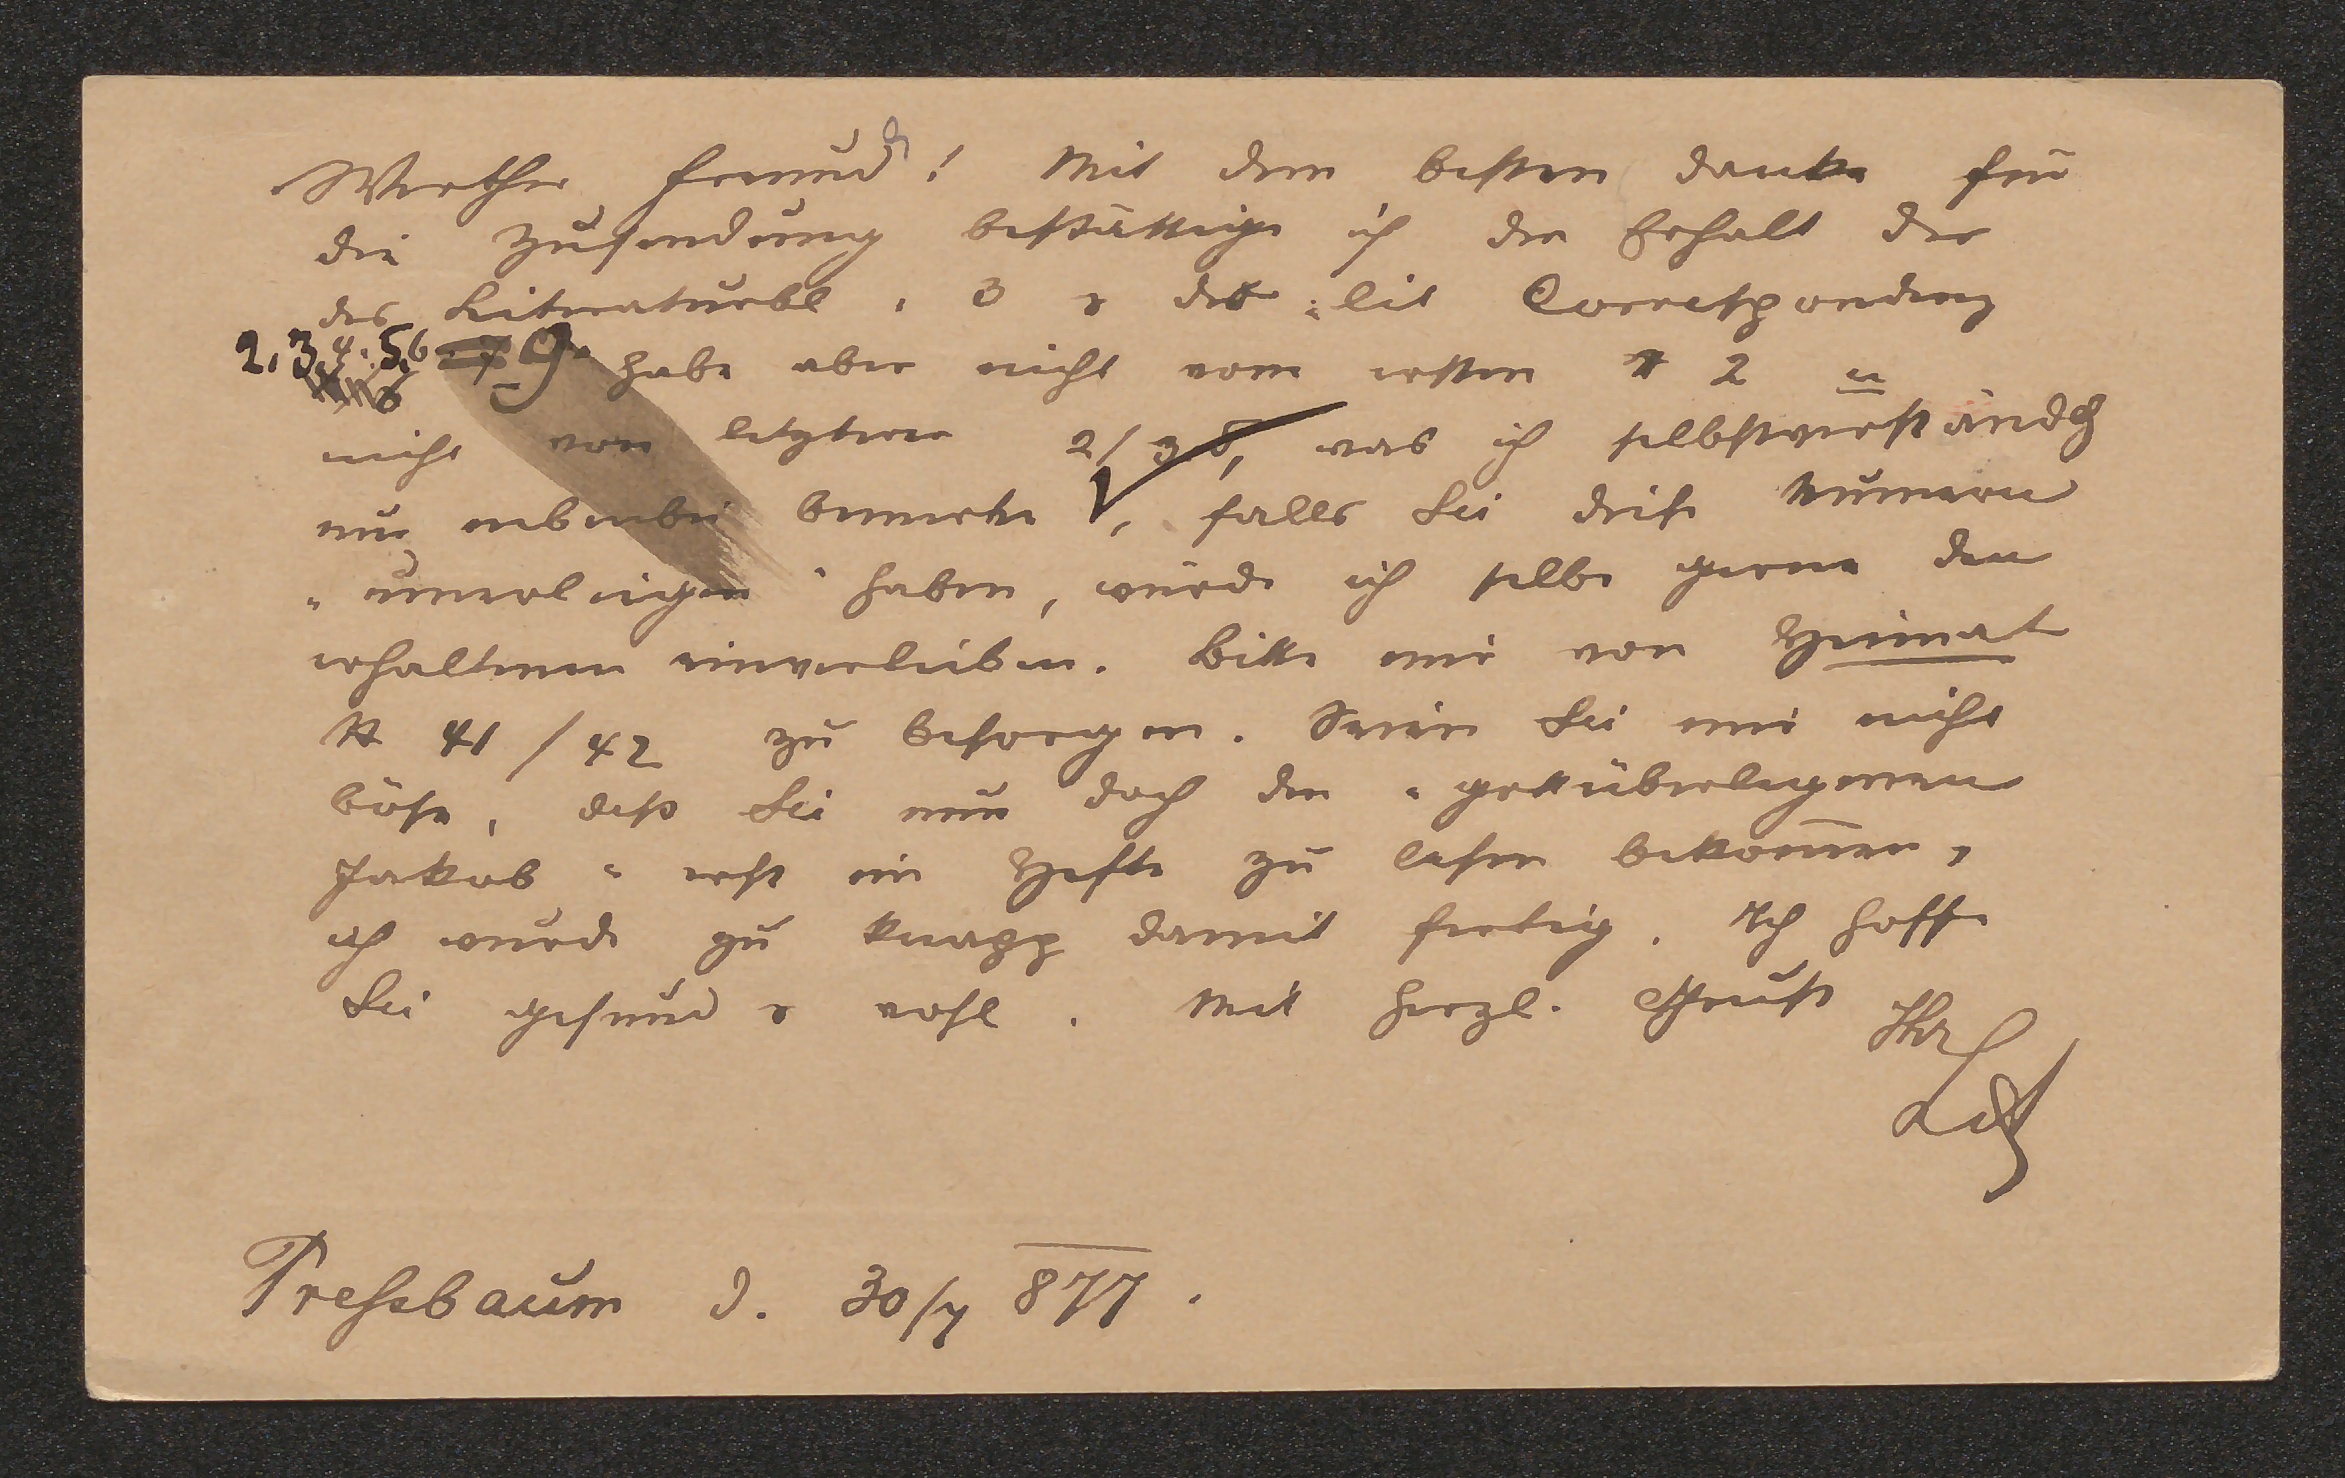 Werther Freund! Mit dem besten Danke für
die Zusendung bestättige ich den Erhalt der
des Literaturbl. 3 & der „lit Correspondenz
2, 3, 4. 5, 6 9. habe aber nicht vom ersten N 2 u
nicht von letzterer 2/3 8, was ich selbstverständch
nur nebenbei bemerke, falls Sie diese Numern
„unverlangt" haben, würde ich selbe gerne den
erhaltenen einverleiben. Bitte mir von Heimat
N 41/42 zu besorgen. Seien Sie mir nicht
böse, daß Sie nun doch den „gottüberlegenen
Jakob" erst im Hefte zu lesen bekommen,
ich wurde zu knapp damit fertig. Ich hoffe
Sie gesund & wohl. Mit herzl. Gruß Ihr
Pressbaum d. 30/7 877.